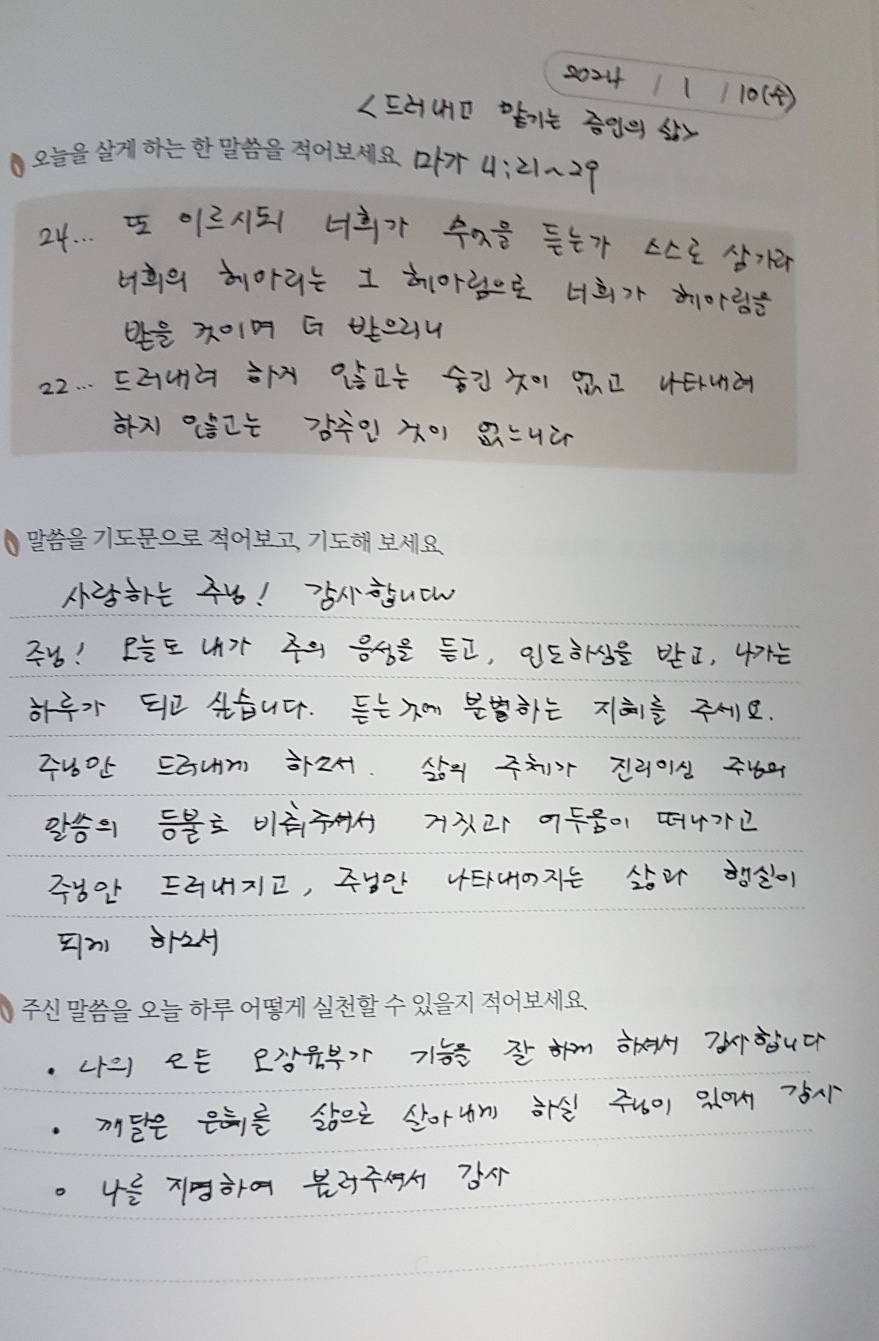 2024 / 1 / 10(수)
<드러내고 맡기는 증인의 삶>
오늘을 살게 하는 한 말씀을 적어보세요. 마가 4:21~29
24... 또 이르시되 너희가 무엇을 듣는가 스스로 삼가라
너희의 헤아리는 그 헤아림으로 너희가 헤아림을
받을 것이며 더 받으리니
22... 드러내려 하지 않고는 숨긴 것이 없고 나타내려
하지 않고는 감추인 것이 없느니라
말씀을 기도문으로 적어보고, 기도해 보세요.
사랑하는 주님! 감사합니다~
주님! 오늘도 내가 주의 음성을 듣고, 인도하심을 받고, 나가는
하루가 되고 싶습니다. 듣는것에 분별하는 지혜를 주세요.
주님만 드러내게 하소서. 삶의 주체가 진리이신 주님의
말씀의 등불로 비춰주셔서 거짓과 어두움이 떠나가고
주님만 드러내지고, 주님만 나타내어지는 삶과 행실이
되게 하소서
주신 말씀을 오늘 하루 어떻게 실천할 수 있을지 적어보세요.
• 나의 모든 오장육부가 기능을 잘 하게 하셔서 감사합니다
• 깨달은 은혜를 삶으로 살아내게 하실 주님이 있어서 감사
• 나를 지명하여 불러주셔서 감사